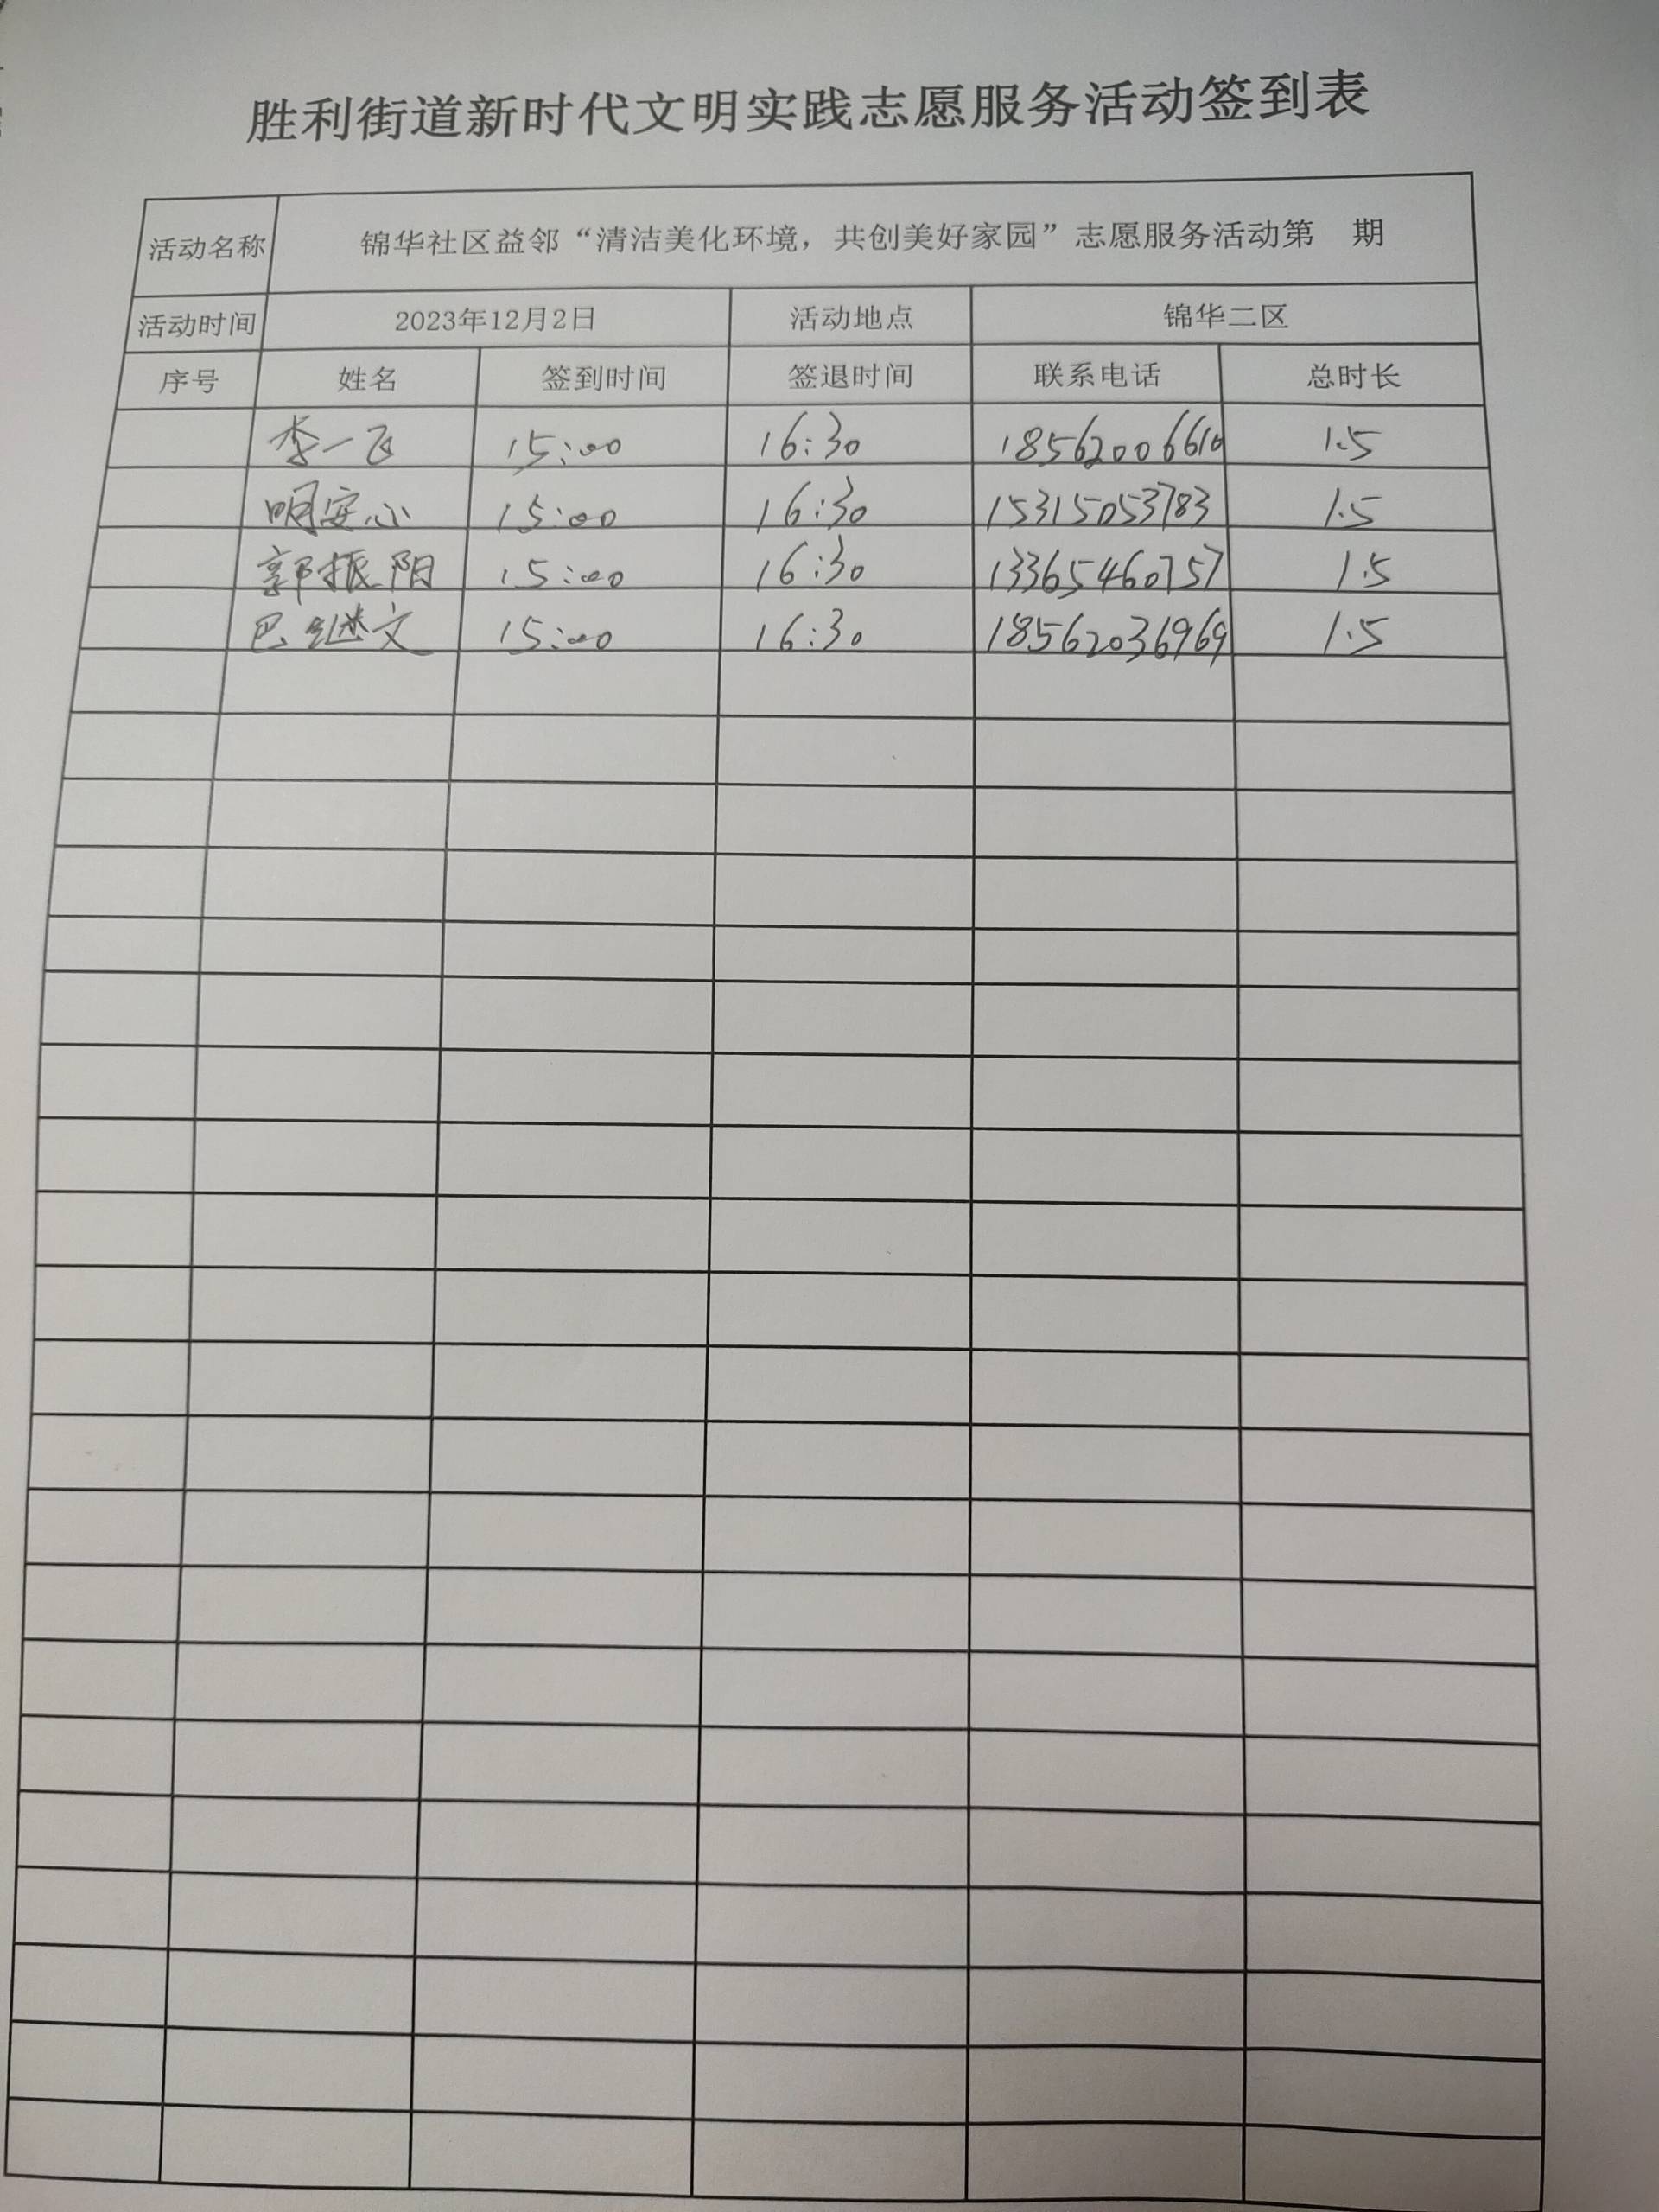 胜利街道新时代文明实践志愿服务活动签到表
活动名称 锦华社区益邻“清洁美化环境，共创美好家园”志愿服务活动第 期
活动时间 2023年12月2日 活动地点 锦华二区
序号 姓名 签到时间 签退时间 联系电话 总时长
李一飞 15:00 16:30 18562006610 1.5
明安心 15:00 16:30 15315053783 1.5
郭振阳 15:00 16:30 13365460757 1.5
巴继文 15:00 16:30 18562036969 1.5